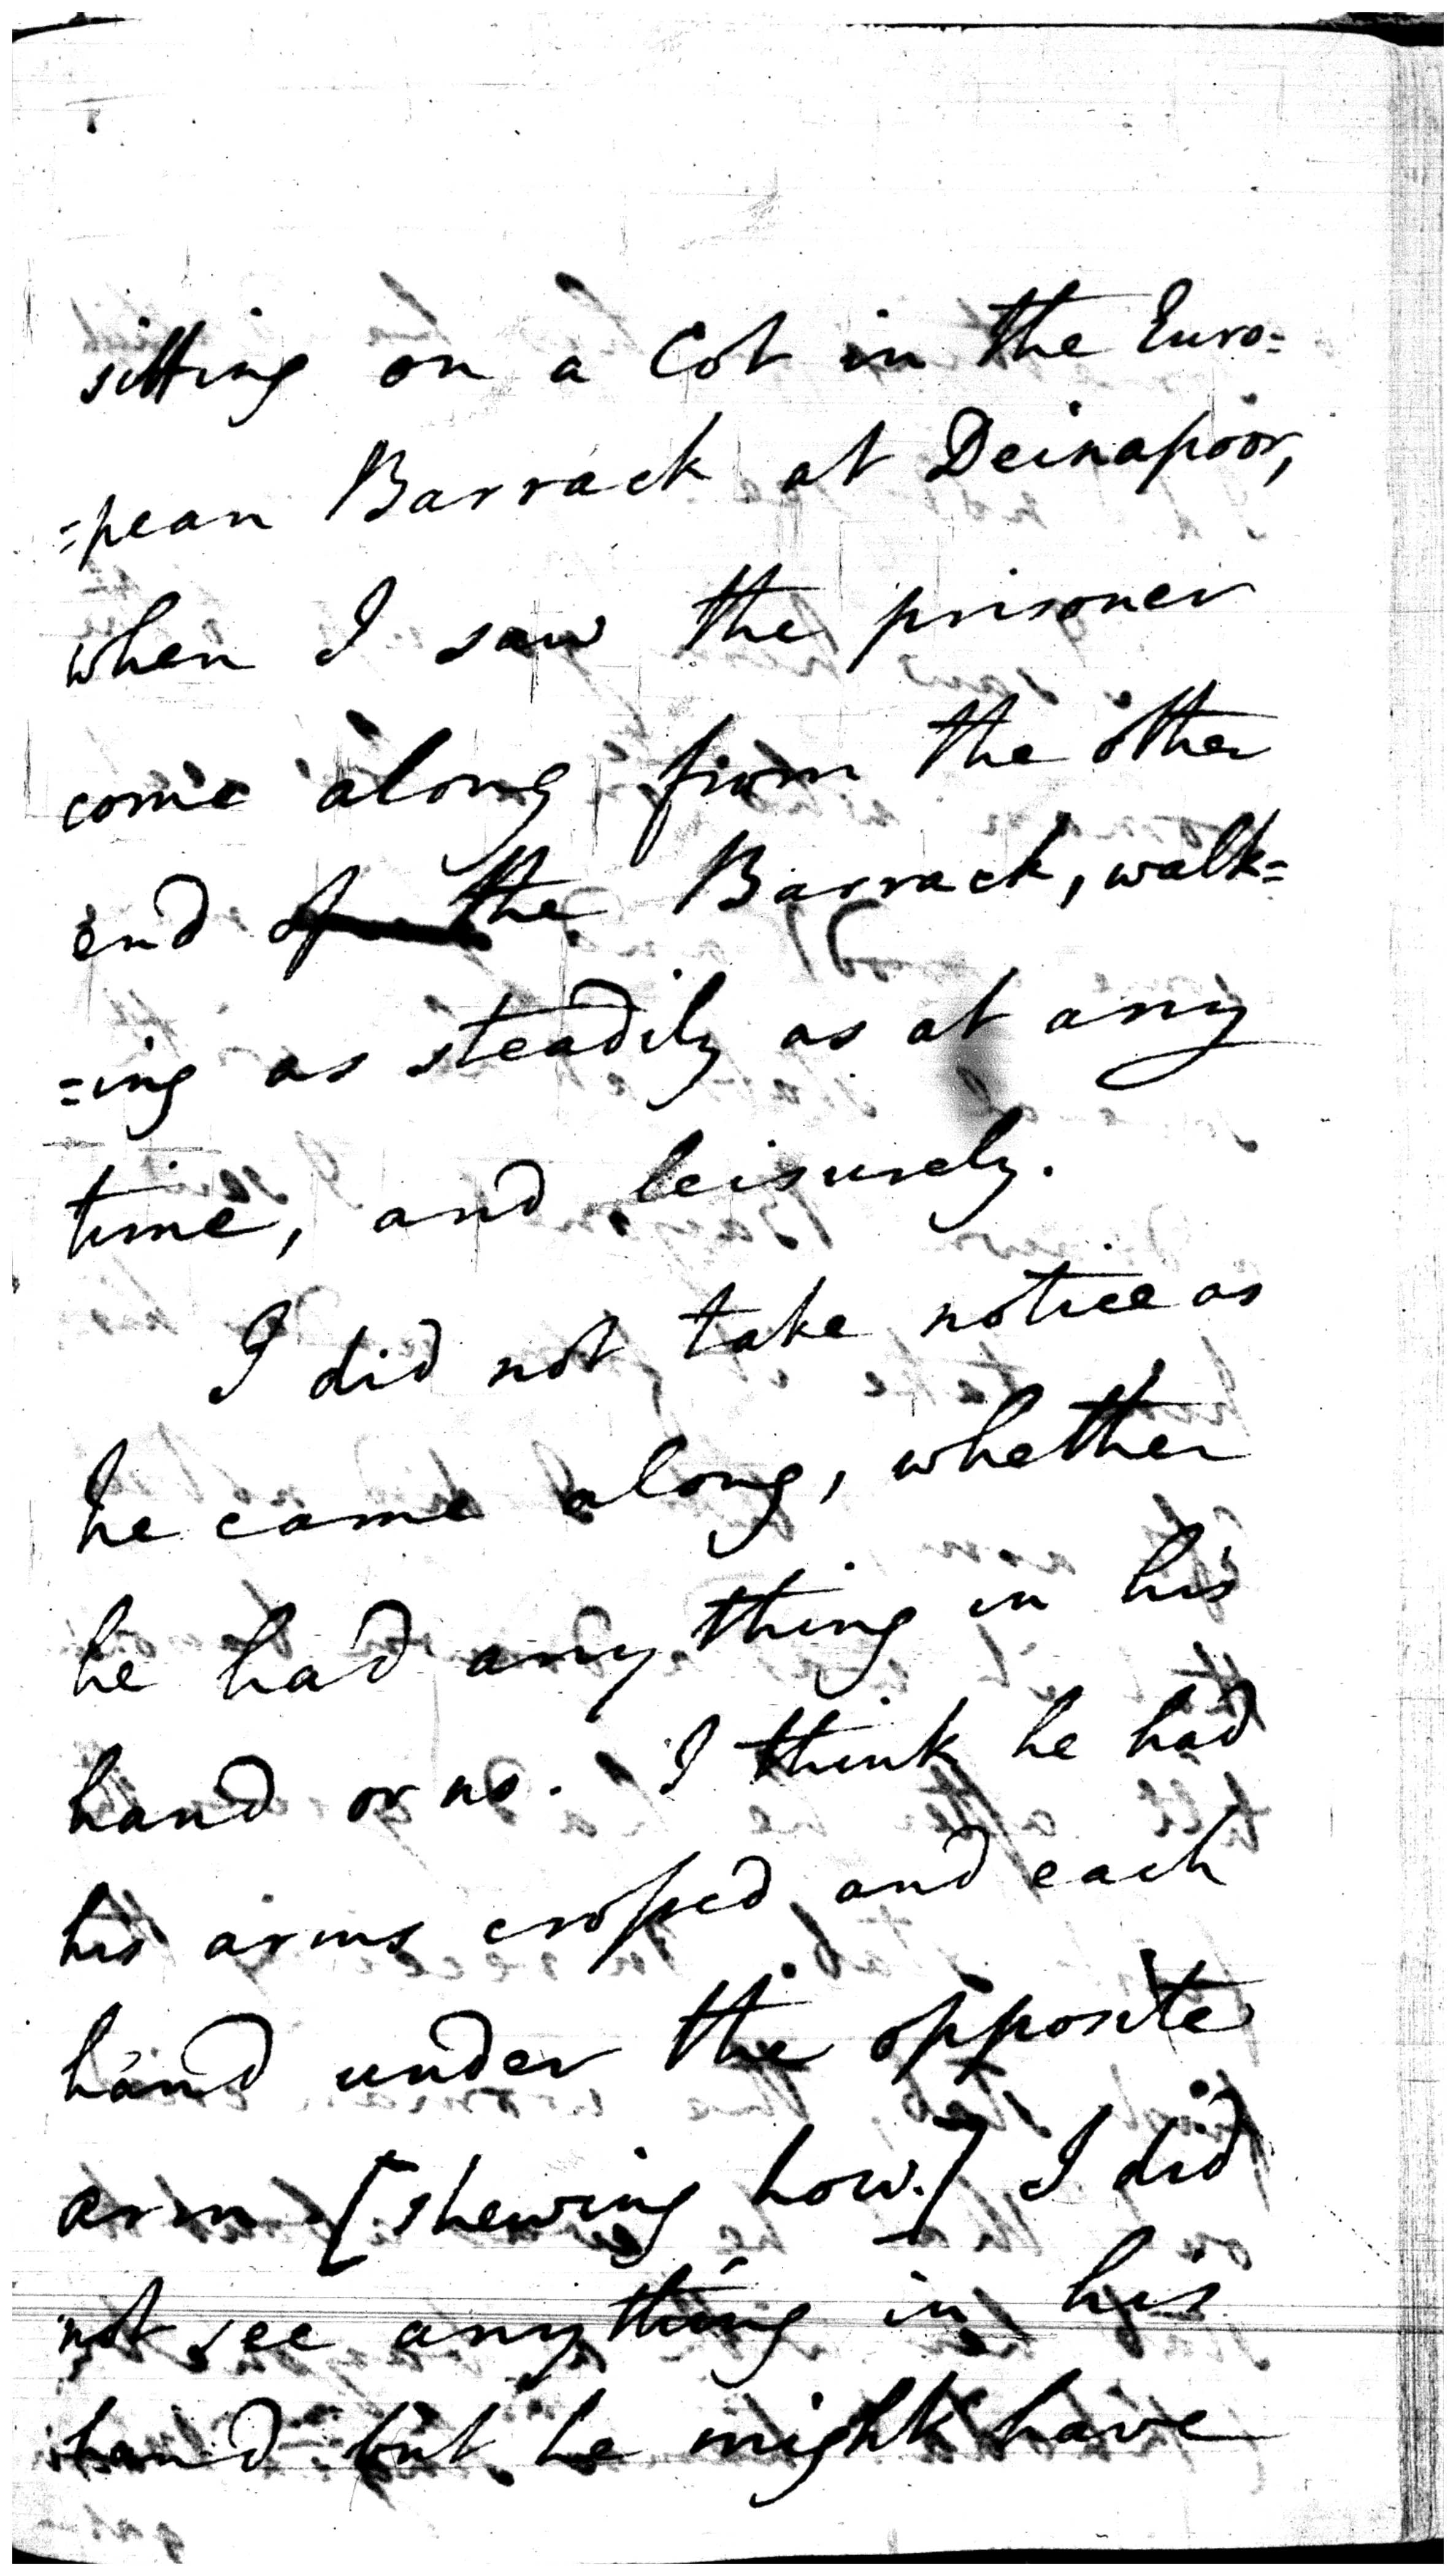 sitting on a Cot in the Euro=
=pean Barrack at Deinapoor,
when I saw the prisoner
come along from the other
end of the Barrack, walk=
=ing as steadily as at any
time, and leisurely.
I did not take notice as
he came along, whether
he had any thing in his
hand or no. I think he had
his arms crossed and each
hand under the opposite
arm [shewing how.] I did
not see any thing in his
hand but he might have